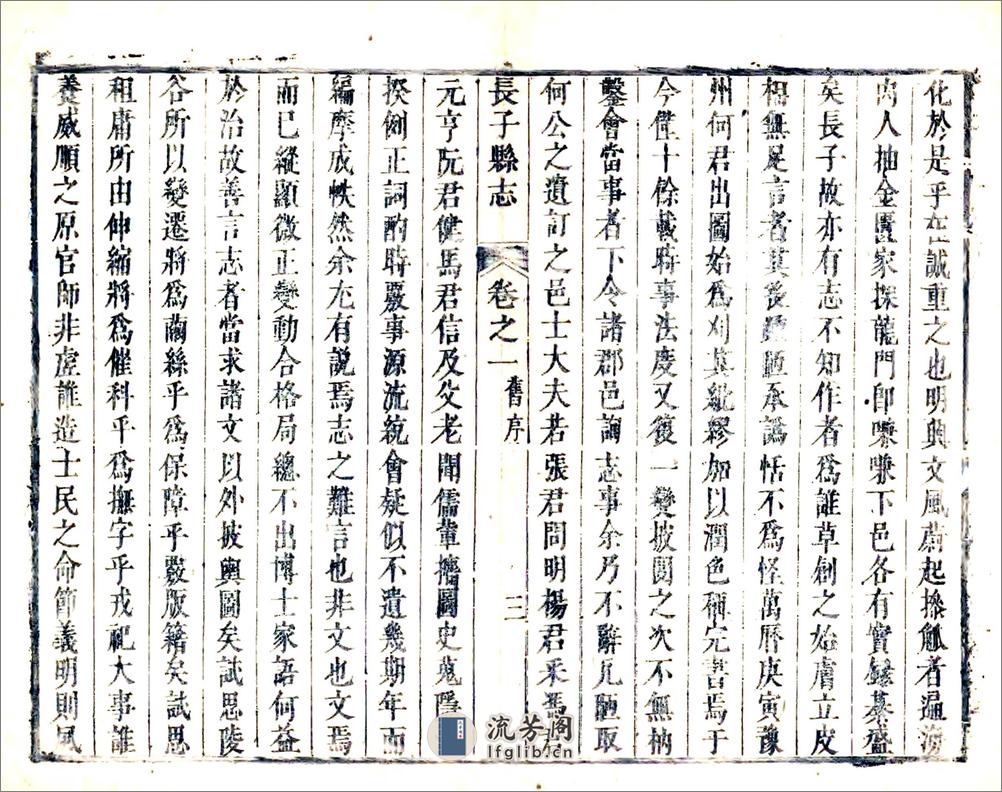 化於是乎在誠重之也明興文風蔚起操觚者遍海
內人抽金匱家探龍門即蕞蕞下邑各有實錄綦盛
矣長子故亦有志不知作者為誰草創之始膚立皮
相無足言者其後踵陋承譌恬不為怪萬曆庚寅豫
州何君出圖始為刈其紕繆加以潤色稱完書焉于
今僅十餘載時事法度又復一變披閱之次不無枘
鑿會當事者下令諸郡邑詢志事余乃不辭冗陋取
何公之遺訂之邑士大夫若張君問明楊君釆焉
長子縣志 卷之一 舊序 三
元亨阮君健馬君信及父老聞儒輩攜圖史蒐隱
揆例正詞酌時覈事源流統會疑似不遺幾期年而
編摩成帙然余尤有說焉志之難言也非文也文焉
而已縱顯微正變動合格局總不出博士家語何益
於治故善言志者當求諸文以外披輿圖矣試思陵
谷所以變遷將為繭絲乎為保障乎覈版籍矣試思
租庸所由伸縮將為催科乎為撫字乎戎祀大事誰
養威順之原官師非虛誰造士民之命節義明則風
流芳阁
lfglib.cn